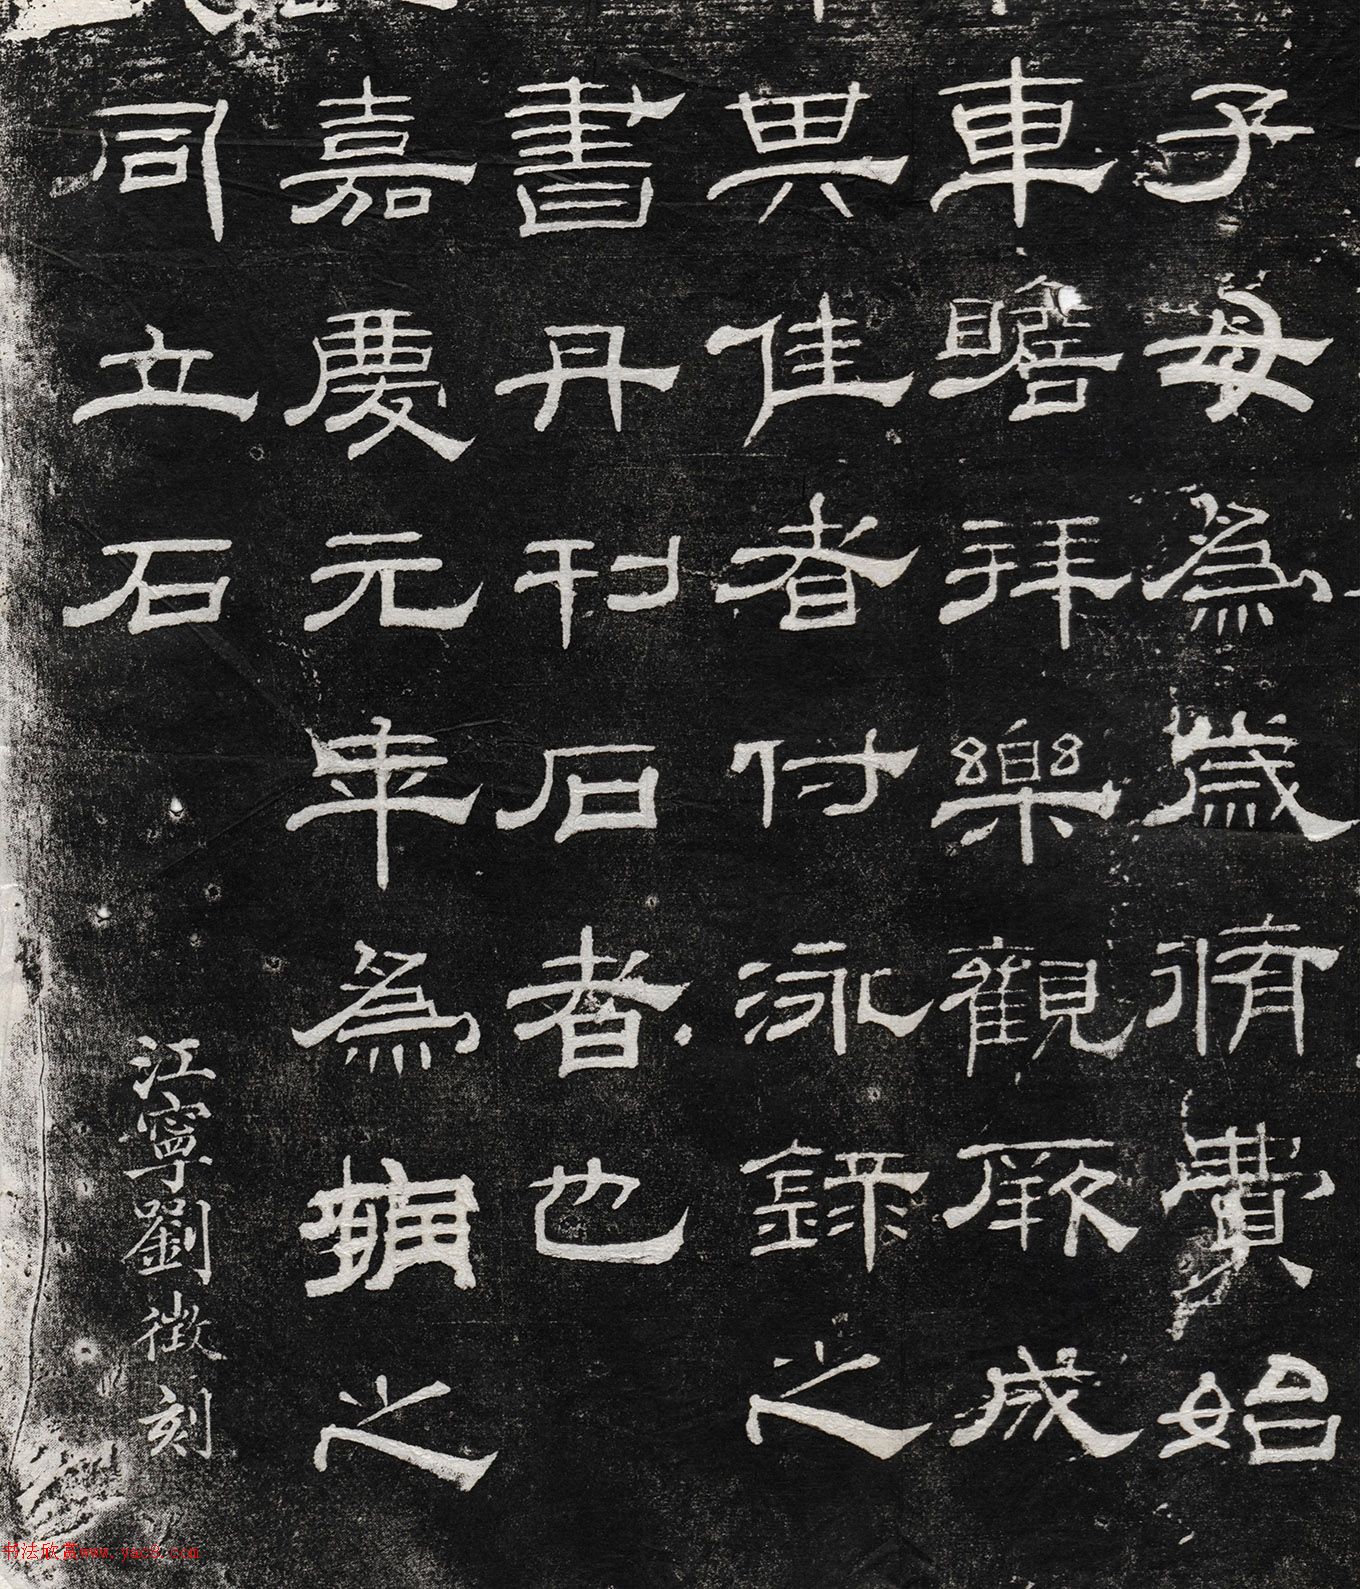 子母為歲脩費始
車瞻拜樂觀厥成
與佳者付泳錄之
書丹刊石者也
嘉慶元年為擁之
同立石
江寧劉徵刻
书法欣赏www.yac8.com